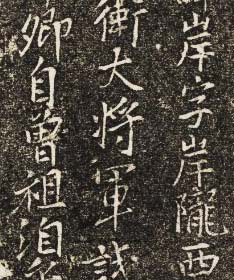 岸字岸隴西
衛大将軍
卿自曾祖洎